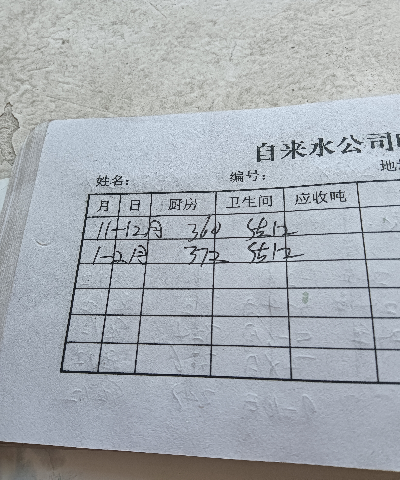 自来水公司
姓名： 编号： 地
月 日 厨房 卫生间 应收吨
11-12月 360
1-2月 372